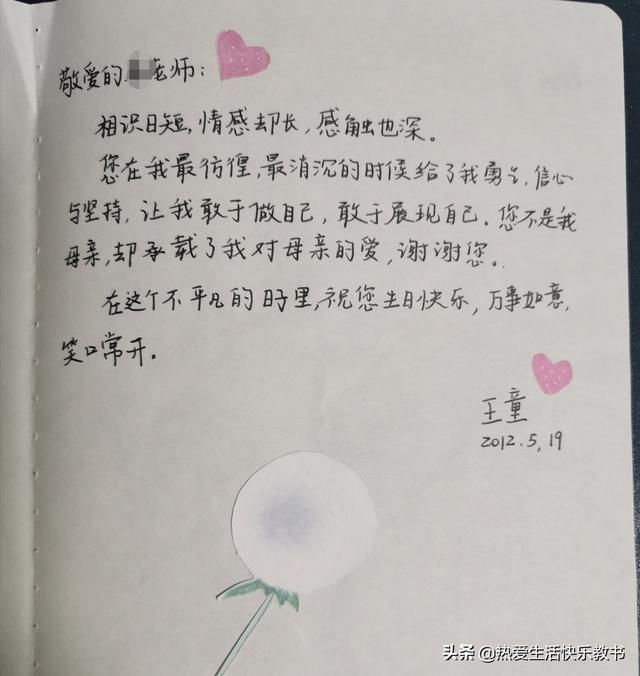 敬爱的 老师:
相识日短,情感却长,感触也深。
您在我最彷徨,最消沉的时候给了我勇气,信心
与坚持,让我敢于做自己,敢于展现自己.您不是我
母亲,却承载了我对母亲的爱,谢谢您。
在这个不平凡的日子里,祝您生日快乐,万事如意,
笑口常开。
王童
2012.5,19
头条 @热爱生活快乐教书